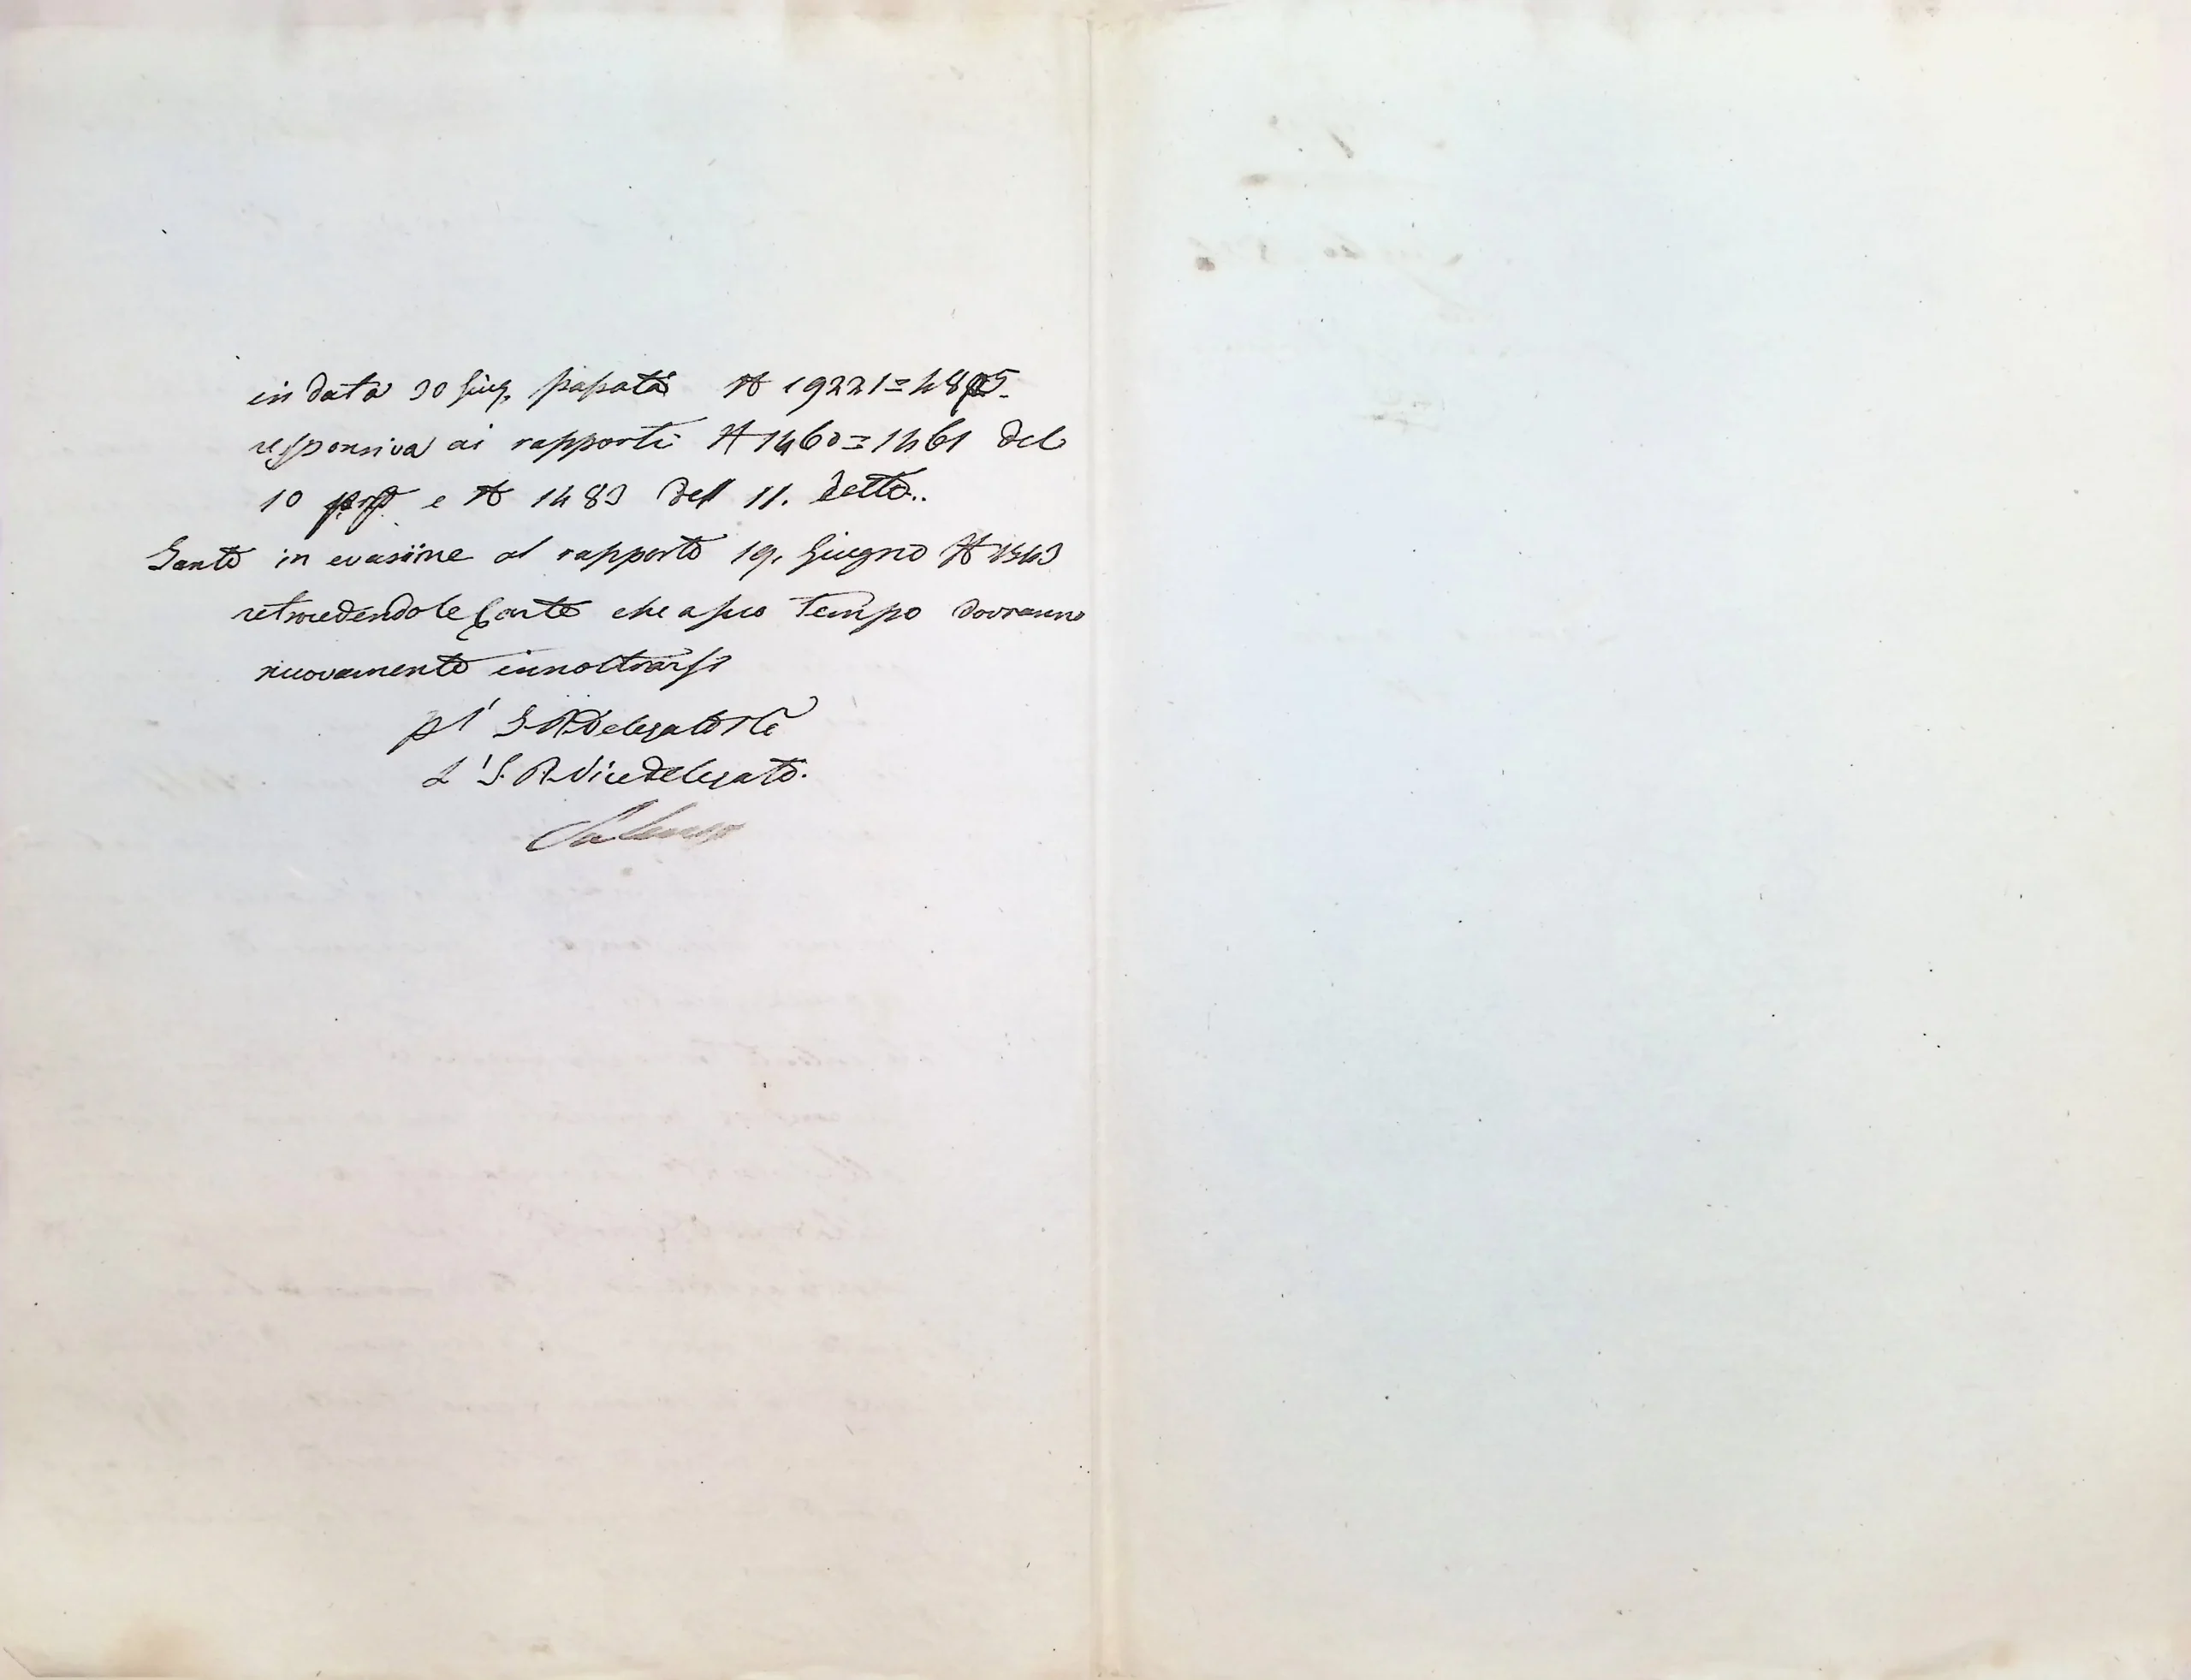 in data 30 Giug. passata N 19221=48
responsiva ai rapporti N 1460=1461 del
10 e N 1483 dell 11. detto..
Tanto in evasione al rapporto 19. Giugno N 1543
retrocedendo le Carte che a suo Tempo dovranno
nuovamente innoltrarsi
pl' I. R. Delegato
L' I. R. ViceDelegato.